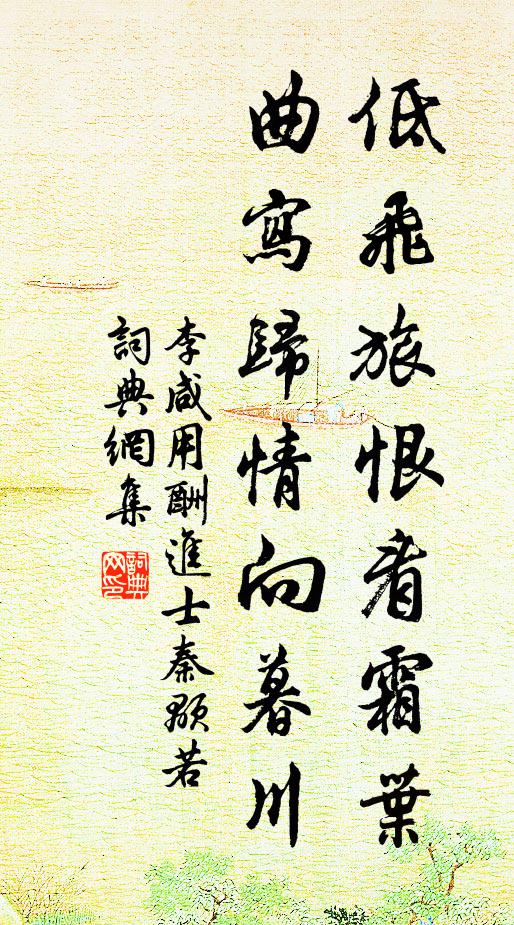 低飛旅恨看霜葉
曲寫歸情向暮川
李咸用酬進士秦顒若
詞典網集
詞典网印